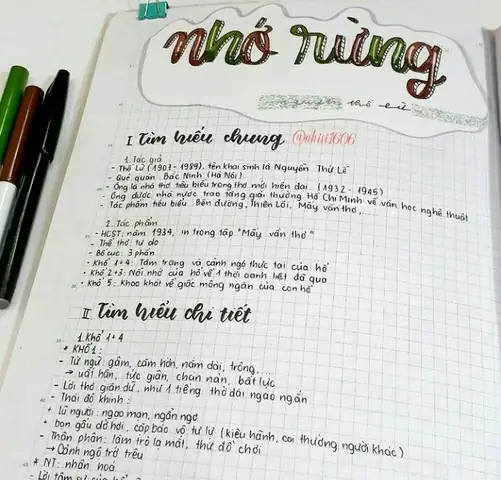 nhớ rừng
thế lữ
I Tìm hiểu chung @nhii1606
1. Tác giả
- Thế Lữ (1907 - 1989), tên khai sinh là Nguyễn Thứ Lễ
- Quê quán: Bắc Ninh (Hà Nội)
- Ông là nhà thơ tiêu biểu trong thơ mới hiện đại (1932 - 1945)
- Ông được nhà nước trao tặng giải thưởng Hồ Chí Minh về văn học nghệ thuật
- Tác phẩm tiêu biểu: Bên đường Thiên Lôi, Mấy vần thơ,
2. Tác phẩm
- HCST: năm 1934, in trong tập "Mấy vần thơ"
- Thể thơ tự do
- Bố cục: 3 phần
• Khổ 1+4: Tâm trạng và cảnh ngộ thực tại của hổ
• Khổ 2+3: Nỗi nhớ của hổ về 1 thời oanh liệt đã qua
• Khổ 5: Khao khát về giấc mộng ngàn của con hổ
II Tìm hiểu chi tiết
1. Khổ 1+4
* KHỔ 1:
- Từ ngữ: gậm, căm hờn, nằm dài, trông,...
→ uất hận, tức giận, chán nản, bất lực
- Lời thơ giận dữ, như 1 tiếng thở dài ngao ngán
- Thái độ khinh:
+ lũ người: ngạo mạn, ngẩn ngơ
+ bọn gấu dở hơi, cặp báo vô tư lự (kiêu hãnh, coi thường người khác)
- Thân phận: làm trò lạ mắt, thứ đồ chơi
→ Cảnh ngộ trớ trêu
* NT: nhân hoá
- Lời tâm sự của hổ